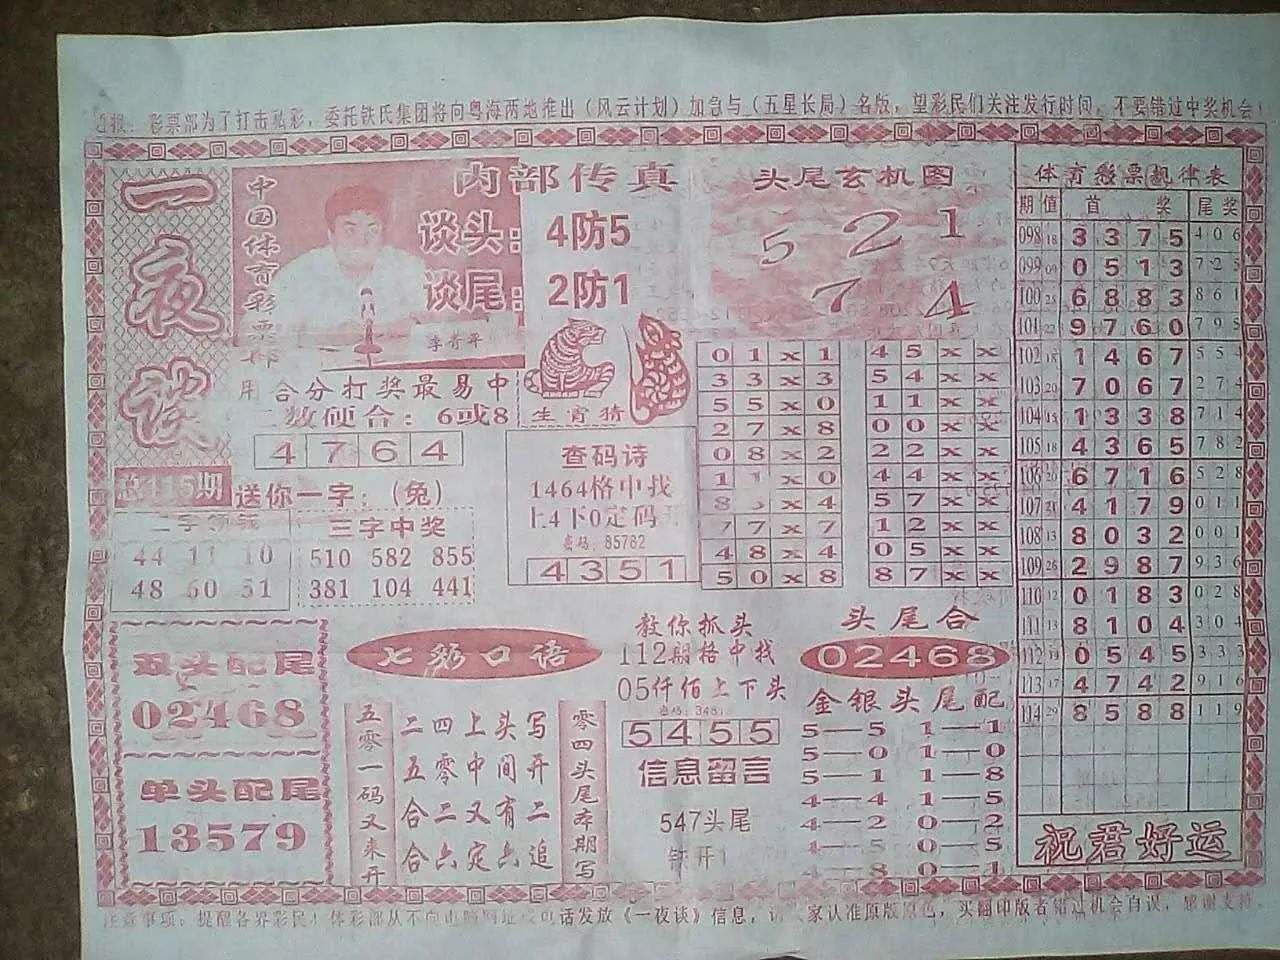 彩票部为了打击私彩，委托铁氏集团将向粤海两地推出（风云计划）加急与（五星长局）名版，望彩民们关注发行时间，不要错过中奖机会！
一夜谈
中国体育彩票部
内部传真
谈头：4防5
谈尾：2防1
李青平
用合分打奖最易中
二数硬合：6或8
4764
总115期
送你一字：（兔）
44 11 10
48 60 51
三字中奖
510 582 855
381 104 441
生肖猜
查码诗
1464格中找
上4下0定码
密码：85782
4351
头尾玄机图
5 2 1
7 4
01x1 45xx
33x3 54xx
55x0 11xx
27x8 00xx
08x2 22xx
1 x0 44xx
8 x4 57xx
77x7 12xx
48x4 05xx
50x8 87xx
体育彩票规律表
期 值 首 奖 尾 奖
098 18 3375 406
099 09 0513 725
100 25 6883 861
101 22 9760 795
102 18 1467 554
103 20 7067 274
104 15 1338 714
105 18 4365 782
106 20 6716 528
107 21 4179 011
108 13 8032 001
109 26 2987 936
110 12 0183 028
111 13 8104 304
112 0545 333
113 17 4742 916
114 29 8588 119
祝君好运
双头配尾
02468
单头配尾
13579
七彩口语
五零一码又来开
二四上头写
五零中间开
合二又有二
合六定六追
零四头尾本期写
教你抓头
112期格中找
05仟佰上下头
5455
信息留言
547头尾
头尾合
02468
金银头尾配
5—5 1—1
5—0 1—0
5—1 1—8
4—4 1—5
4—2 0—2
4—5 0—5
4—8 0—1
注意事项：提醒各界彩民！体彩部从不向 电话发放《一夜谈》信息，请 家认准原版原色，买翻印版者错过机会自误，感谢支持。